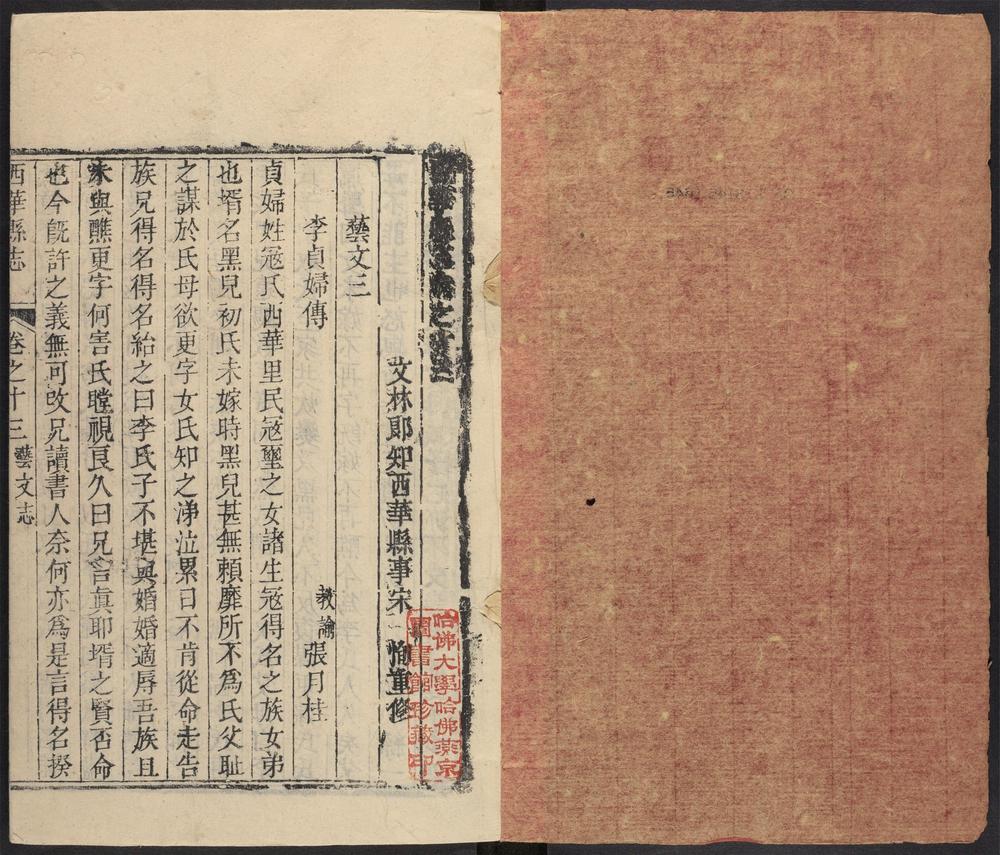 西華縣志卷之十三
文林郎知西華縣事宋恂重修
藝文三
李貞婦傳 教諭張月桂
貞婦姓寇氏西華里民寇璽之女諸生寇得名之族女弟
也壻名黑兒初氏未嫁時黑兒甚無賴靡所不為氏父恥
之謀於氏母欲更字女氏知之涕泣累日不肯從命走告
族兄得名得名紿之曰李氏子不堪與婚婚適辱吾族且
未與醮更字何害氏瞠視良久曰兄言真耶壻之賢否命
也今既許之義無可改兄讀書人奈何亦為是言得名揆
西華縣志 卷之十三 藝文志
哈佛大學哈佛燕京
圖書館珍藏印